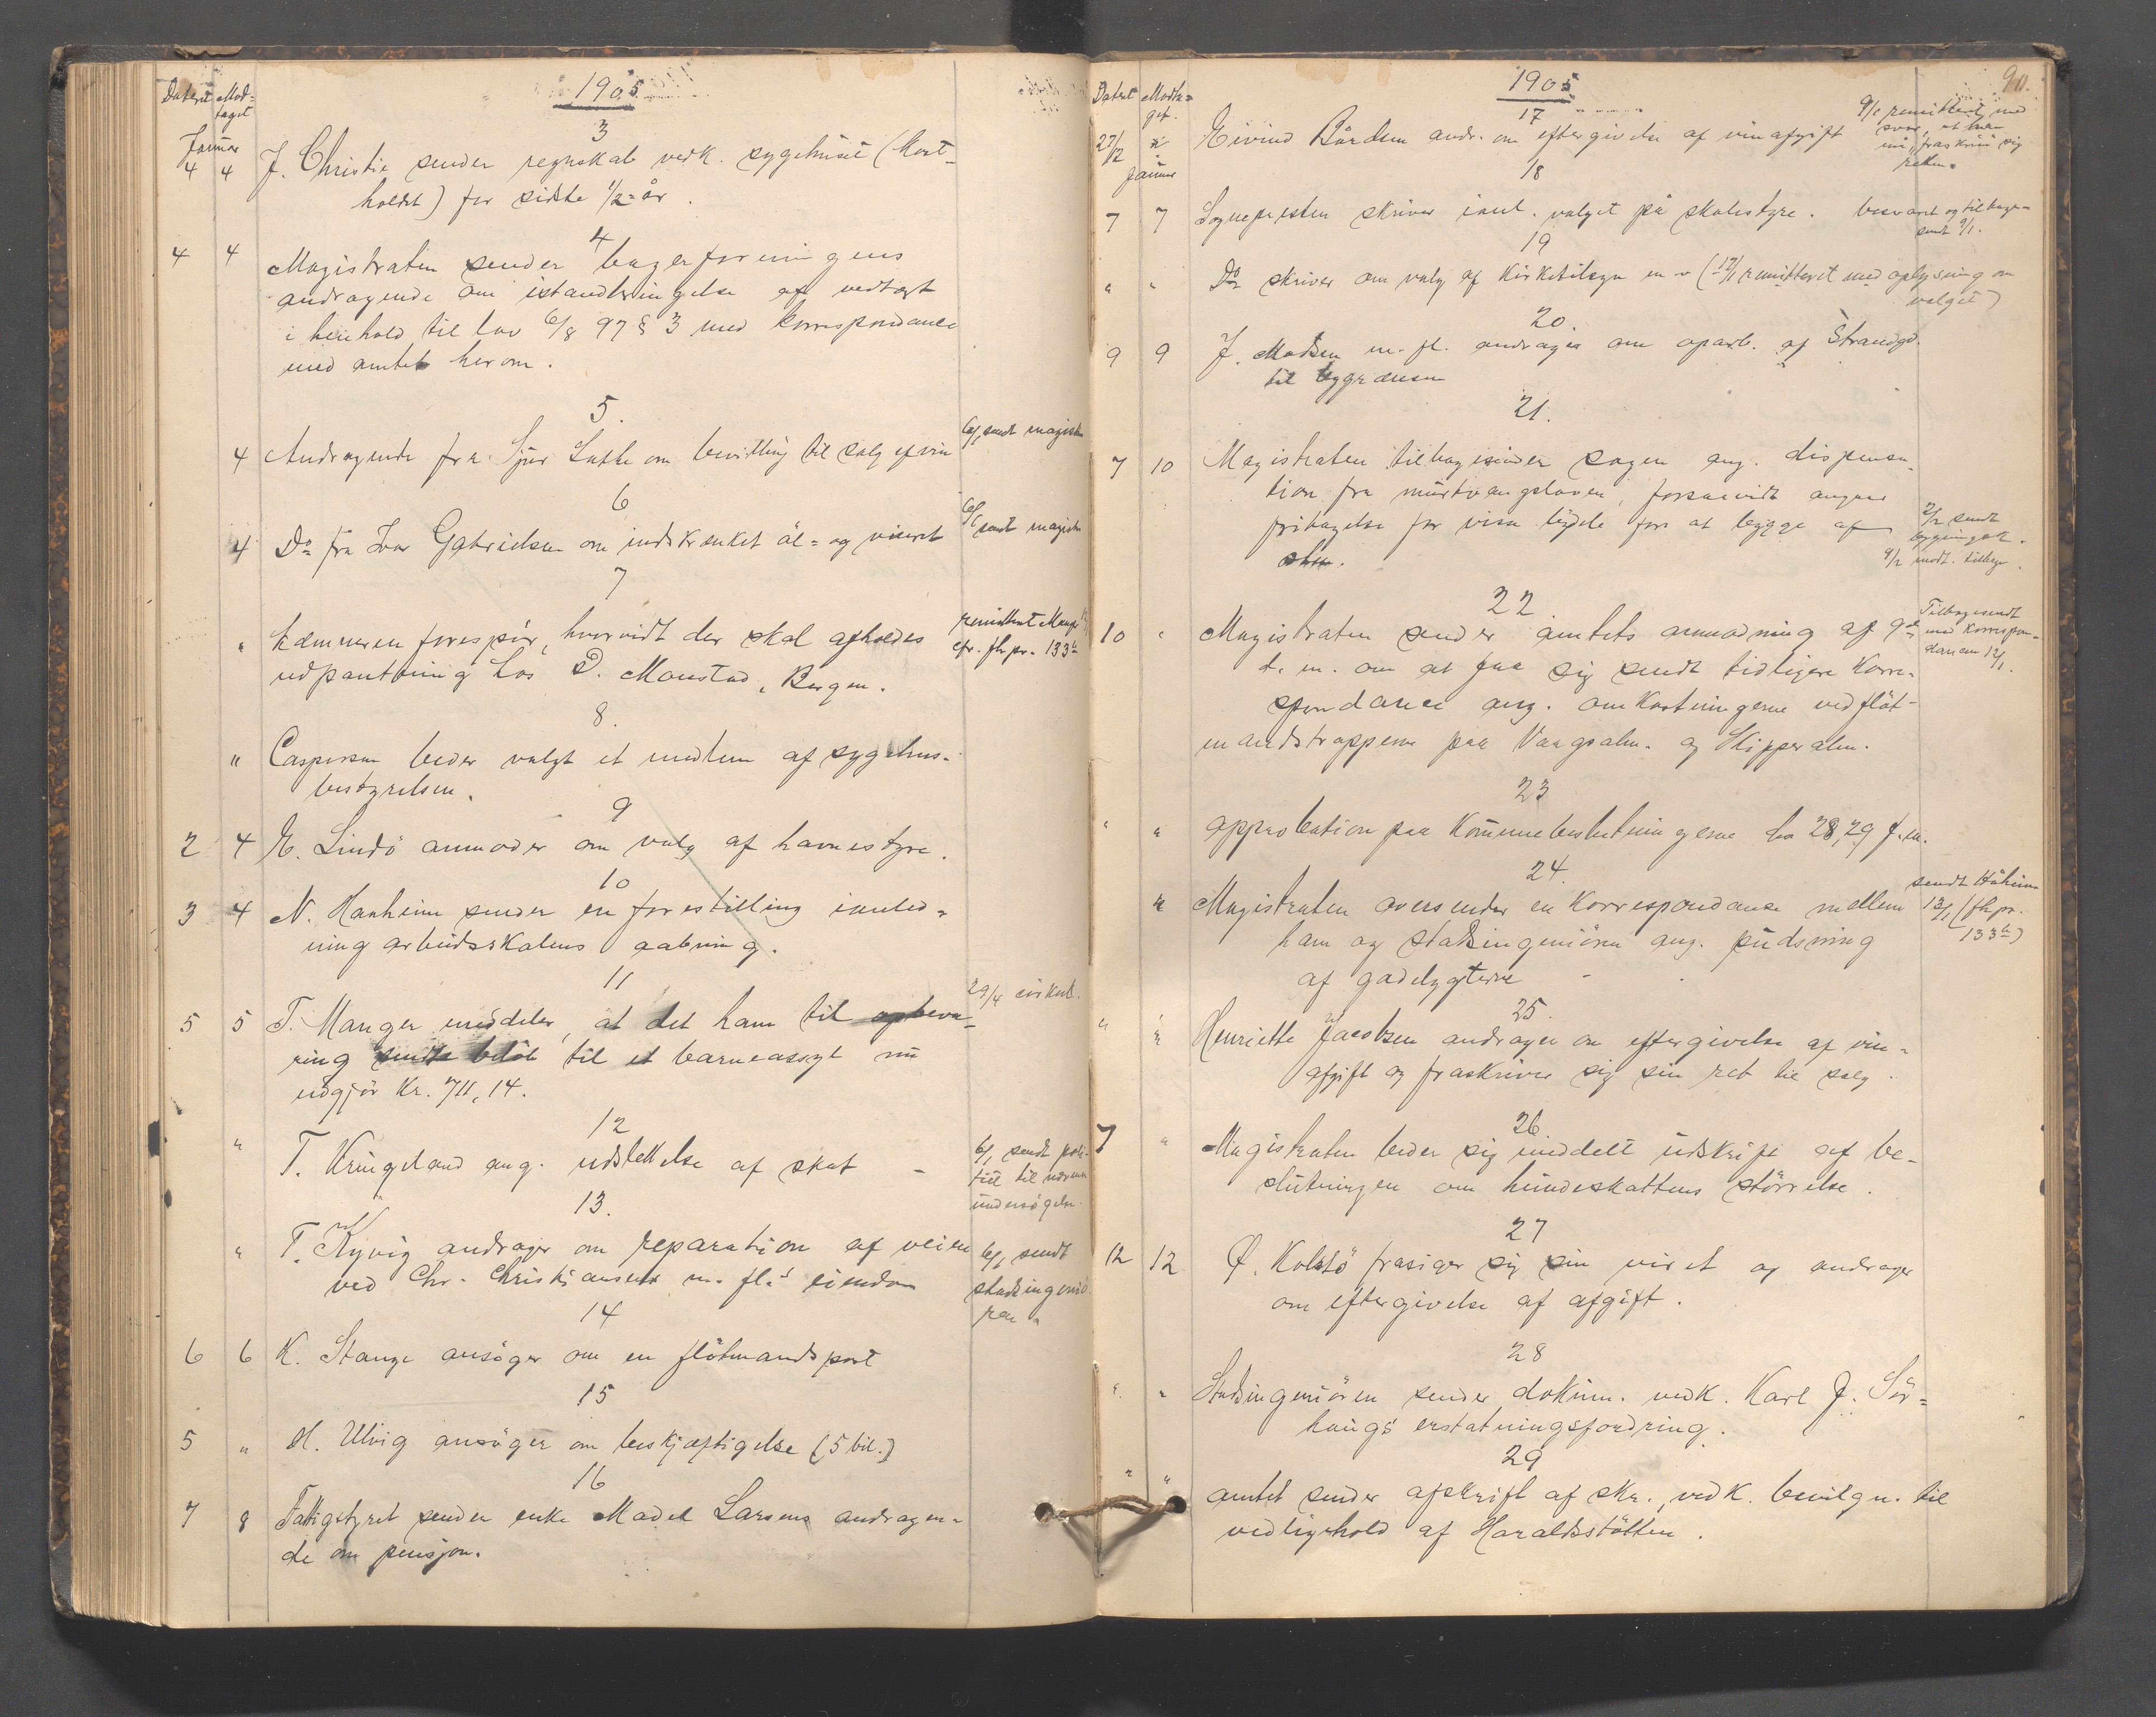 1905
Dateret Mod=
taget
Januar
3
4 4 J. Christie sender regnskab vedk. sygehuset (Mort-
holdt) for sidste 1/2-år.
4
4 4 Magistraten sender bagerforeningens
andragende om istandbringelse af vedtægt
i henhold til lov 6/8 97 § 3 med korrespondance
med amtet herom.
5.
4 Andragende fra Sjur Lothe om bevilling til salg af vin
6/1 sendt magistr
6
4 Do fra Ivar Gabrielsen om indskrænket øl= og vinret
6/1 sendt magistr
7
" Kæmneren forespør, hvorvidt der skal afholdes
udpantning hos D. Monstad, Bergen.
remitteret
cfr. fhpr. 133
8.
" Caspersen beder valgt et medlem af sygehus-
bestyrelsen.
9
2 4 E. Lindö anmoder om valg af havnestyre.
10
3 4 N. Hanheim sender en forestilling i anled-
ning arbeidsskolens aabning.
11
5 5 T. Manger meddeler, at det ham til opbeva-
ring sendte beløb til et barneasyl nu
udgjör Kr. 711,14.
29/4 cirkul.
12
" T. Kringeland ang. udslettelse af skat -
6/1 sendt poli-
tiet til nærmere
undersøgelse.
13.
" T. Kyvig andrager om reparation af veien
ved Chr. Christiansens m. fl.s eiendom
6/1 sendt
stadsingeniø
ren "
14
6 6 K. Stange ansøger om en flötmandspost
15
5 " H. Ulvig ansøger om beskjæftigelse (5 bil.)
16
7 8 Fattigstyret sender enke Madel Larsens andragen-
de om pension.
90.
1905
Dateret Modta=
get.
17
27/12 Eivind Bårdsen andr. om eftergivelse af vinafgift
9/1 remitteret med
svar, at han
må fraskrive sig
retten.
Januar
18
7 7 Sognepresten skriver i anl. valget på skolestyre. besvaret og tilbage-
sendt 9/1.
19
" " Do skriver om valg af kirketilsyn (12/1 remitteret med oplysning om
valget)
20.
9 9 J. Madsen m. fl. andrager om oparb. af Strandgd.
til bygrænsen
21.
7 10 Magistraten tilbagesender sagen ang. dispensa-
tion fra murtvangsloven, forsaavidt angaar
fritagelse for visse bydele for at bygge af
sten.
2/2 sendt
bygningsk.
9/2 modt. tilbage.
22
10 " Magistraten sender amtets anmodning af 9de
d. m. om at faa sig sendt tidligere korre-
spondance ang. omkostningerne ved flöt-
mandstrapperne paa Vaagsalm. og Skipperalm.
Tilbagesendt
med korrespon-
dancen 12/1.
23
" " Approbation paa kommunebeslutningerne fra 28, 29 f. m.
24.
" Magistraten oversender en korrespondanse mellem
ham og stadsingeniören ang. pudsning
af gadelygterne -
sendt
13/1 (fhpr.
133)
25.
" " Henriette Jacobsen andrager om eftergivelse af vin-
afgift og fraskriver sig sin ret til salg.
26
7 " Magistraten beder sig meddelt udskrift af be-
slutningen om hundeskattens störrelse.
27
12 12 Ø. Kolstö frasiger sig sin vinret og andrager
om eftergivelse af afgift.
28
" " Stadsingeniören sender dokum. vedk. Karl J. Sör-
haugs erstatningsfordring.
29
" " Amtet sender afskrift af skr., vedk. bevilgn. til
vedligehold af Haraldsstötten.